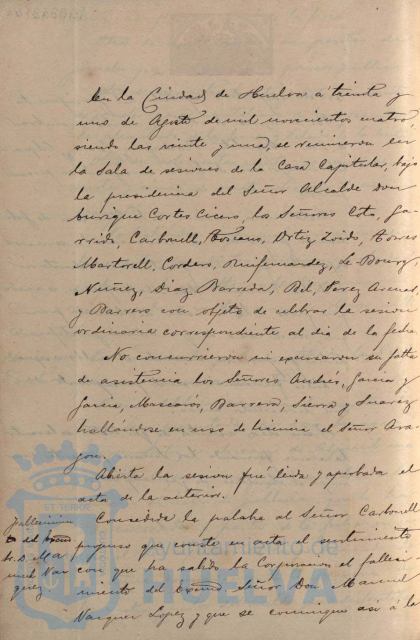 En la Ciudad de Huelva a treinta y
uno de Agosto de mil novecientos cuatro
siendo las veinte y una, se reunieron en
la Sala de sesiones de la Casa Capitular, bajo
la presidencia del Señor Alcalde don
Enrique Cortes Cicero, los Señores Coto, Ga-
rrido, Carbonell, Toscano, Ortiz Zoido, Torres
Martorell, Cordero, Ruifernandez, Le-Bourg,
Nuñez, Diaz Barreda, Bel, Perez Arenas,
y Barrero con objeto de celebrar la sesion
ordinaria correspondiente al dia de la fecha
No concurrieron ni escusaron su falta
de asistencia los Señores Andrés, Garcia y
Garcia, Mascarós, Barrera, Sierra y Suarez
hallándose en uso de licencia el Señor Ara-
gon.
Abierta la sesion fué leida y aprobada el
acta de la anterior.
Fallecimien
to del Excmo
Sr. D. Ma
nuel Vaz
quez
Concedida la palabra al Señor Carbonell
propuso que conste en acta el sentimiento
con que ha sabido la Corporacion el falleci-
miento del Excmo. Señor Don Manuel
Vazquez Lopez y que se comunique asi á la
Ayuntamiento de
HUELVA